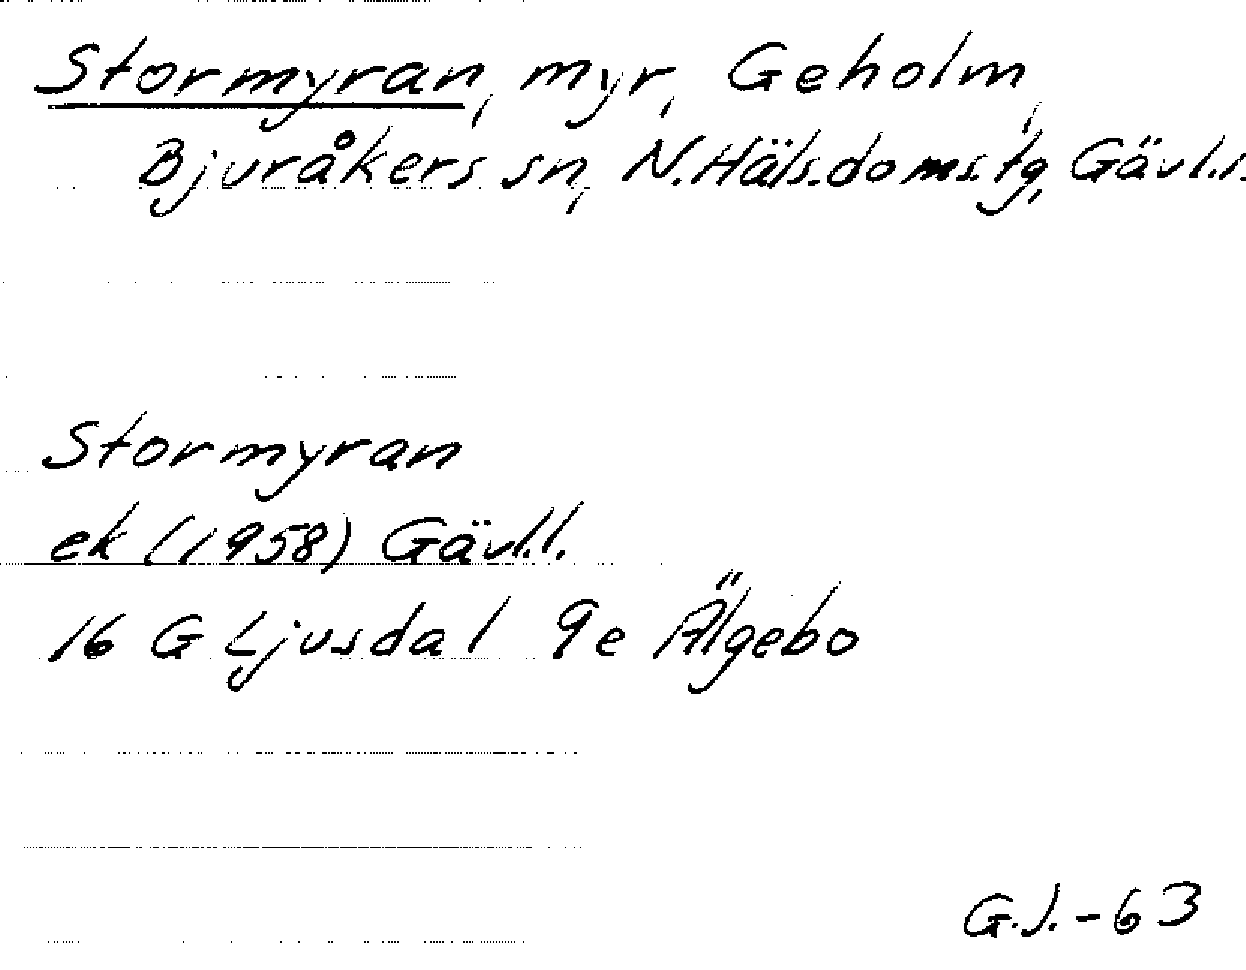 Stormyran, myr, Geholm,
Bjuråkers sn, N.Häls.doms.tg, Gävl.l.
Stormyran
ek (1958) Gävl.l.
16 G Ljusdal 9e Älgebo
G.J.-63